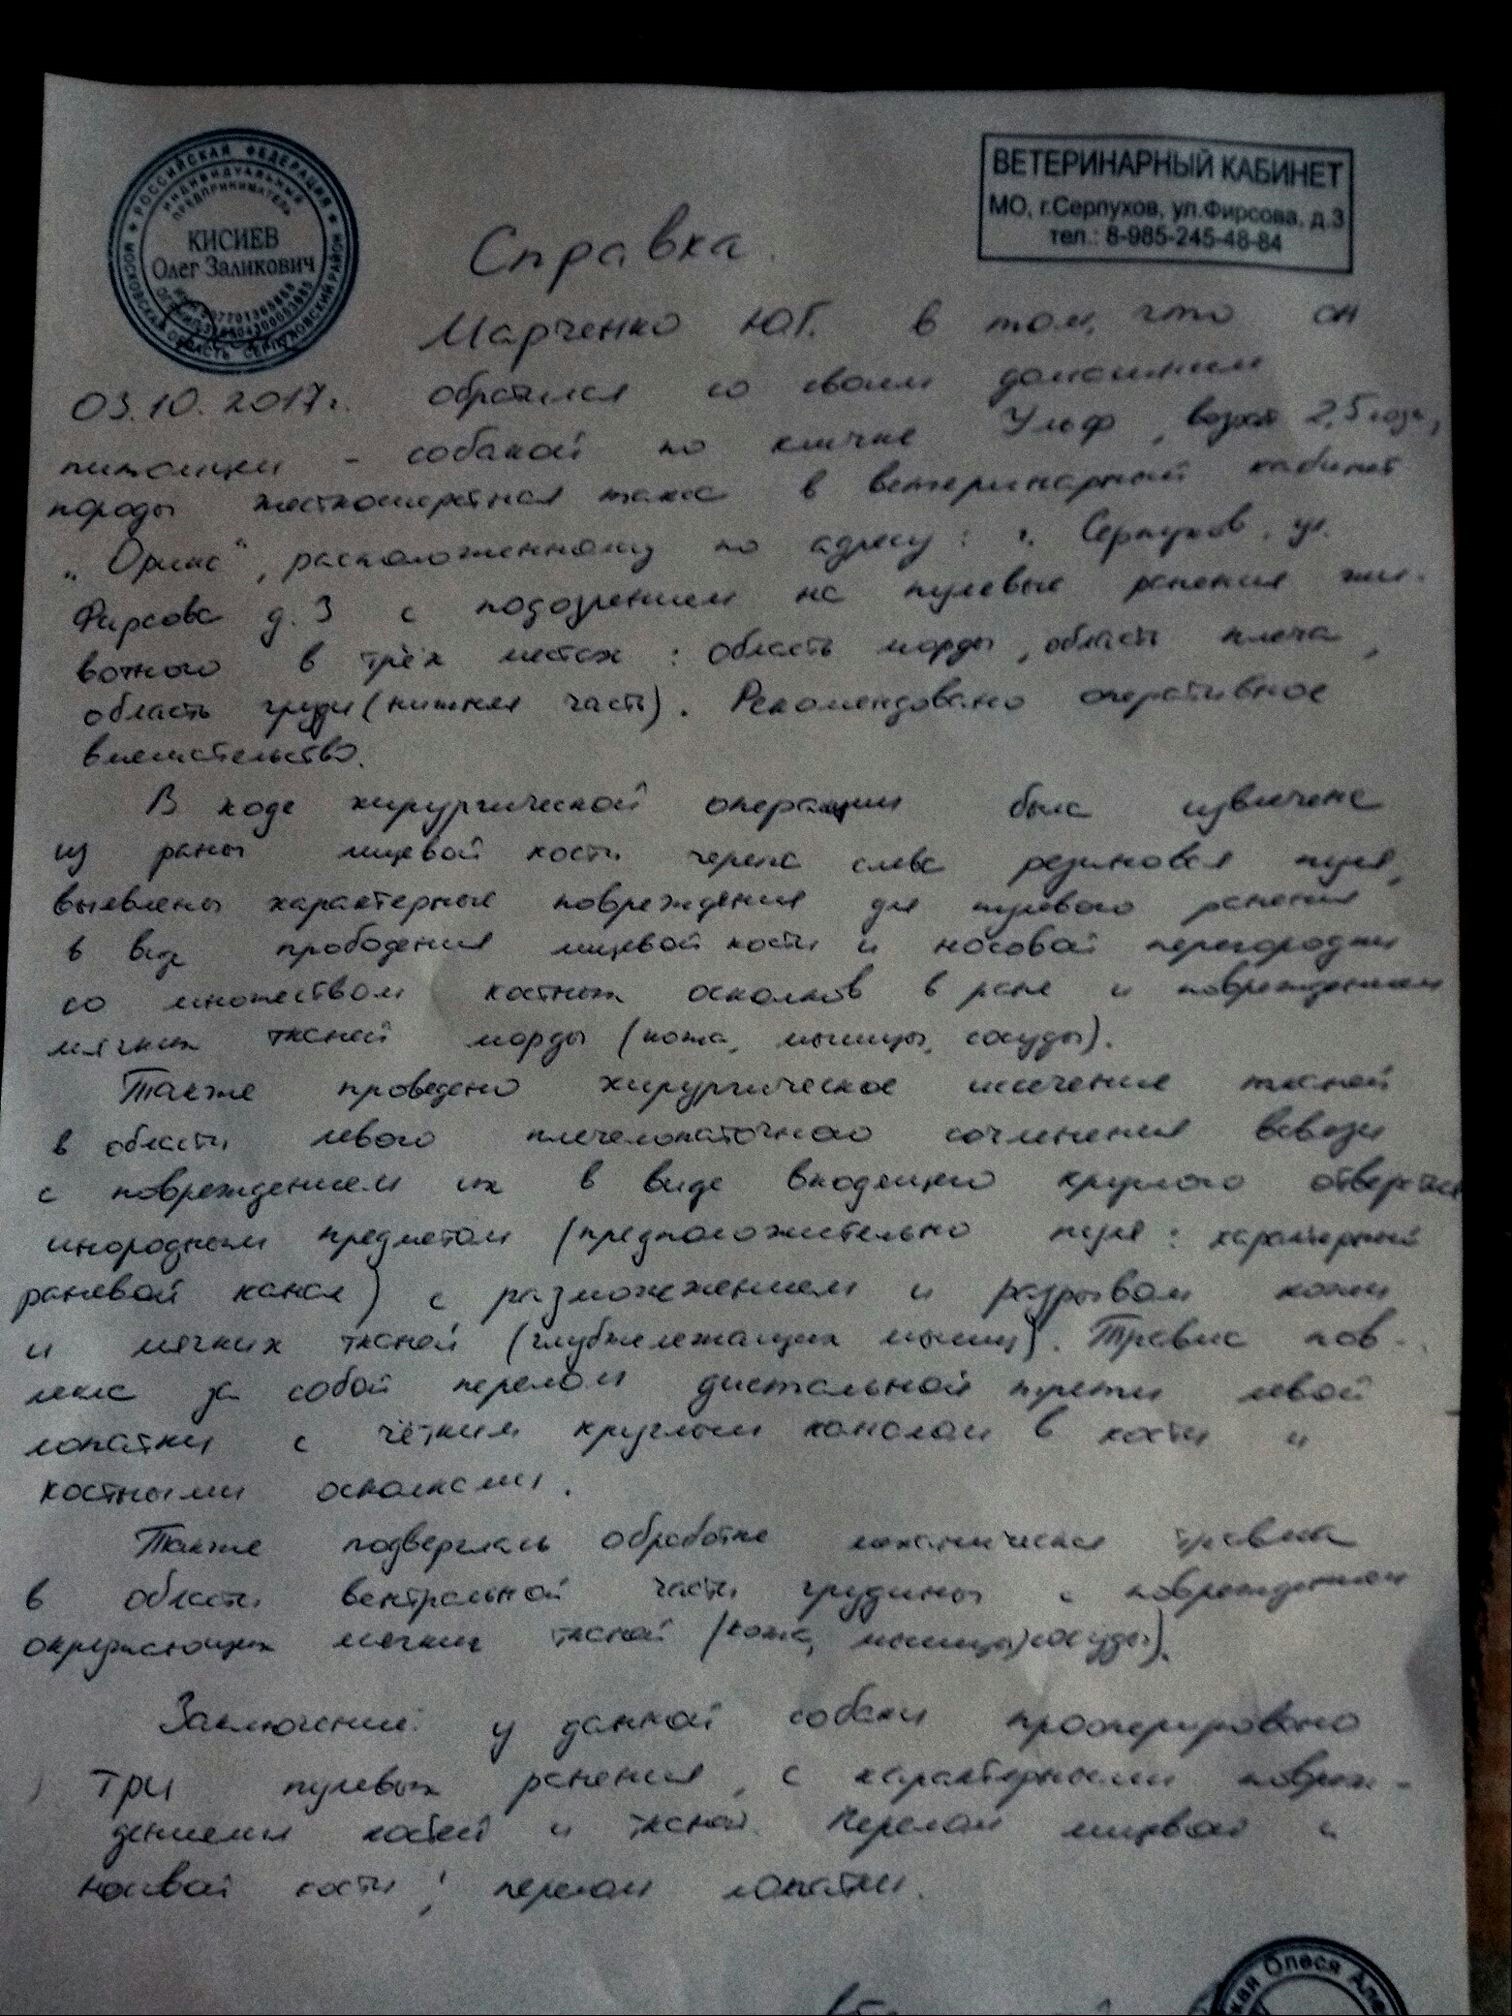 РОССИЙСКАЯ ФЕДЕРАЦИЯ
МОСКОВСКАЯ ОБЛАСТЬ СЕРПУХОВСКИЙ РАЙОН
ИНДИВИДУАЛЬНЫЙ
ПРЕДПРИНИМАТЕЛЬ
КИСИЕВ
Олег Заликович
ВЕТЕРИНАРНЫЙ КАБИНЕТ
МО, г.Серпухов, ул.Фирсова, д.3
тел.: 8-985-245-48-84
Справка.
Марченко Ю.Г. в том, что он
03.10.2017г. обратился со своим домашним
питомцем - собакой по кличке Ульф, возраст 2,5 года,
породы жесткошерстная такса в ветеринарный кабинет
„Орикс“, расположенному по адресу: г. Серпухов, ул.
Фирсова д.3 с подозрением на пулевые ранения жи-
вотного в трёх местах: область морды, область плеча,
область груди (нижняя часть). Рекомендовано оперативное
вмешательство.
В ходе хирургической операции была извлечена
из раны лицевой кости черепа слева резиновая пуля,
выявлены характерные повреждения для пулевого ранения
в виде прободения лицевой кости и носовой перегородки
со множеством костных осколков в ране и повреждением
мягких тканей морды (кожа, мышцы, сосуды).
Также проведено хирургическое иссечение тканей
в области левого плечелопаточного сочленения всвязи
с повреждением их в виде входящего круглого отверстия
инородным предметом (предположительно пуля: характерный
раневой канал) с размозжением и разрывом кожи
и мягких тканей (глубжележащих мышц). Травма пов-
лекла за собой перелом дистальной трети левой
лопатки с чётким круглым каналом в кости и
костными осколками.
Также подверглась обработке механическая травма
в области вентральной части грудины с повреждением
окружающих мягких тканей (кожа, мышцы, сосуды).
Заключение: у данной собаки прооперировано
три пулевых ранения, с характерными повреж-
дениями костей и тканей. Перелом лицевой и
носовой кости; перелом лопатки.
кая Олеся Але